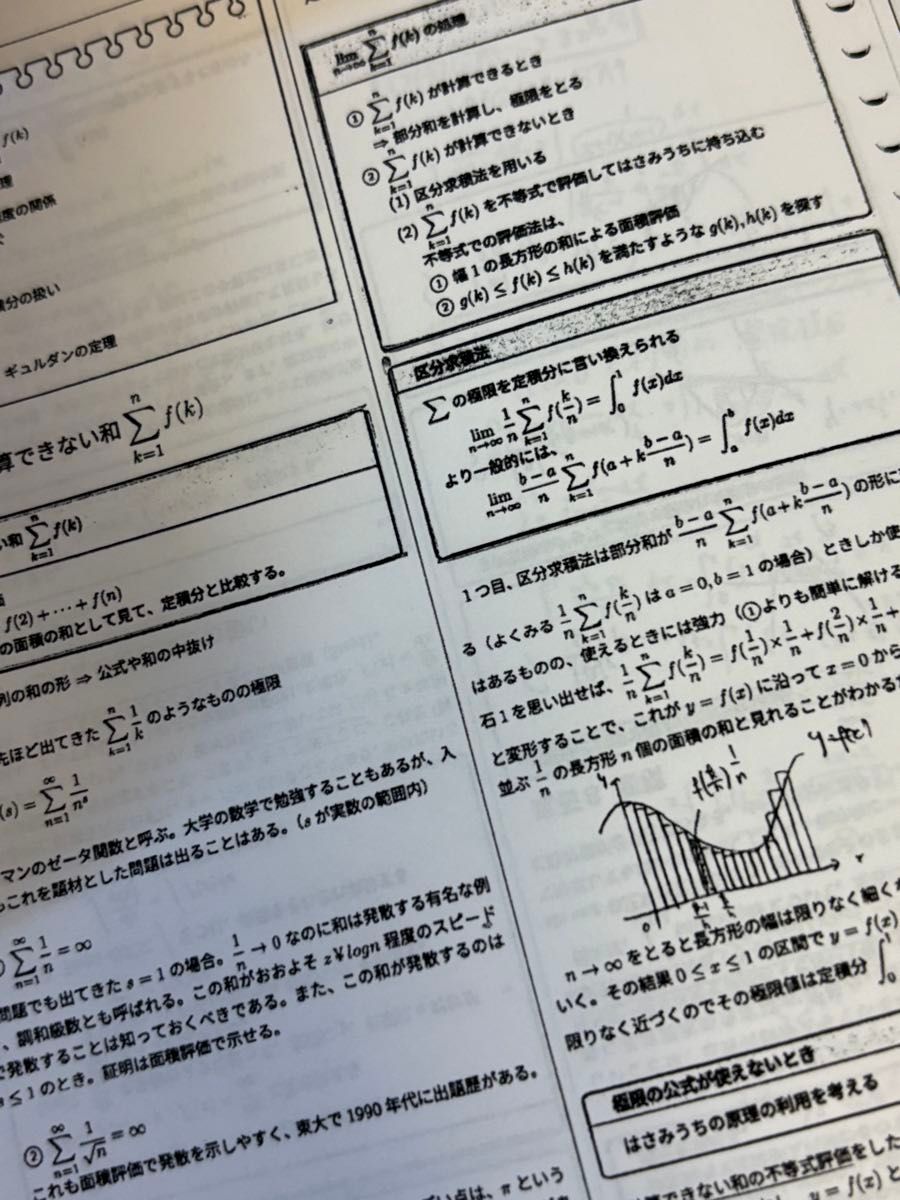 f(k)
理
度の関係
積分の扱い
ギュルダンの定理
算できない和 \sum_{k=1}^{n} f(k)
い和 \sum_{k=1}^{n} f(k)
f(2)+⋯+f(n)
の面積の和として見て、定積分と比較する。
列の和の形 ⇒ 公式や和の中抜け
先ほど出てきた \sum_{k=1}^{n} \frac{1}{k} のようなものの極限
(s) = \sum_{n=1}^{∞} \frac{1}{n^s}
マンのゼータ関数と呼ぶ。大学の数学で勉強することもあるが、入
これを題材とした問題は出ることはある。(s が実数の範囲内)
\sum_{n=1}^{∞} \frac{1}{n} = ∞
問題でも出てきた s = 1 の場合。\frac{1}{n} → 0 なのに和は発散する有名な例
、調和級数とも呼ばれる。この和がおおよそ z¥logn 程度のスピード
で発散することは知っておくべきである。また、この和が発散するのは
s ≤ 1 のとき。証明は面積評価で示せる。
② \sum_{n=1}^{∞} \frac{1}{\sqrt{n}} = ∞
これも面積評価で発散を示しやすく、東大で 1990 年代に出題歴がある。
点は、π という
\lim_{n→∞} \sum_{k=1}^{n} f(k) の処理
① \sum_{k=1}^{n} f(k) が計算できるとき
⇒ 部分和を計算し、極限をとる
② \sum_{k=1}^{n} f(k) が計算できないとき
(1) 区分求積法を用いる
(2) \sum_{k=1}^{n} f(k) を不等式で評価してはさみうちに持ち込む
不等式での評価法は、
① 幅 1 の長方形の和による面積評価
② g(k) ≤ f(k) ≤ h(k) を満たすような g(k), h(k) を探す
区分求積法
∑ の極限を定積分に言い換えられる
\lim_{n→∞} \frac{1}{n} \sum_{k=1}^{n} f(\frac{k}{n}) = \int_0^1 f(x)dx
より一般的には、
\lim_{n→∞} \frac{b-a}{n} \sum_{k=1}^{n} f(a+k\frac{b-a}{n}) = \int_a^b f(x)dx
1つ目、区分求積法は部分和が \frac{b-a}{n} \sum_{k=1}^{n} f(a+k\frac{b-a}{n}) の形に
る(よくみる \frac{1}{n} \sum_{k=1}^{n} f(\frac{k}{n}) は a = 0, b = 1 の場合)ときしか使
はあるものの、使えるときには強力(①よりも簡単に解ける
石 1 を思い出せば、\frac{1}{n} \sum_{k=1}^{n} f(\frac{k}{n}) = f(\frac{1}{n})×\frac{1}{n}+f(\frac{2}{n})×\frac{1}{n}+
と変形することで、これが y = f(x) に沿って x = 0 から
並ぶ \frac{1}{n} の長方形 n 個の面積の和と見れることがわかるだ
y
f(\frac{k}{n}) \frac{1}{n}
y=f(x)
0
\frac{k-1}{n} \frac{k}{n}
x
n → ∞ をとると長方形の幅は限りなく細く
いく。その結果 0 ≤ x ≤ 1 の区間で y = f(x)
限りなく近づくのでその極限値は定積分 \int_0
極限の公式が使えないとき
はさみうちの原理の利用を考える
算できない和の不等式評価をした
= f(x) と